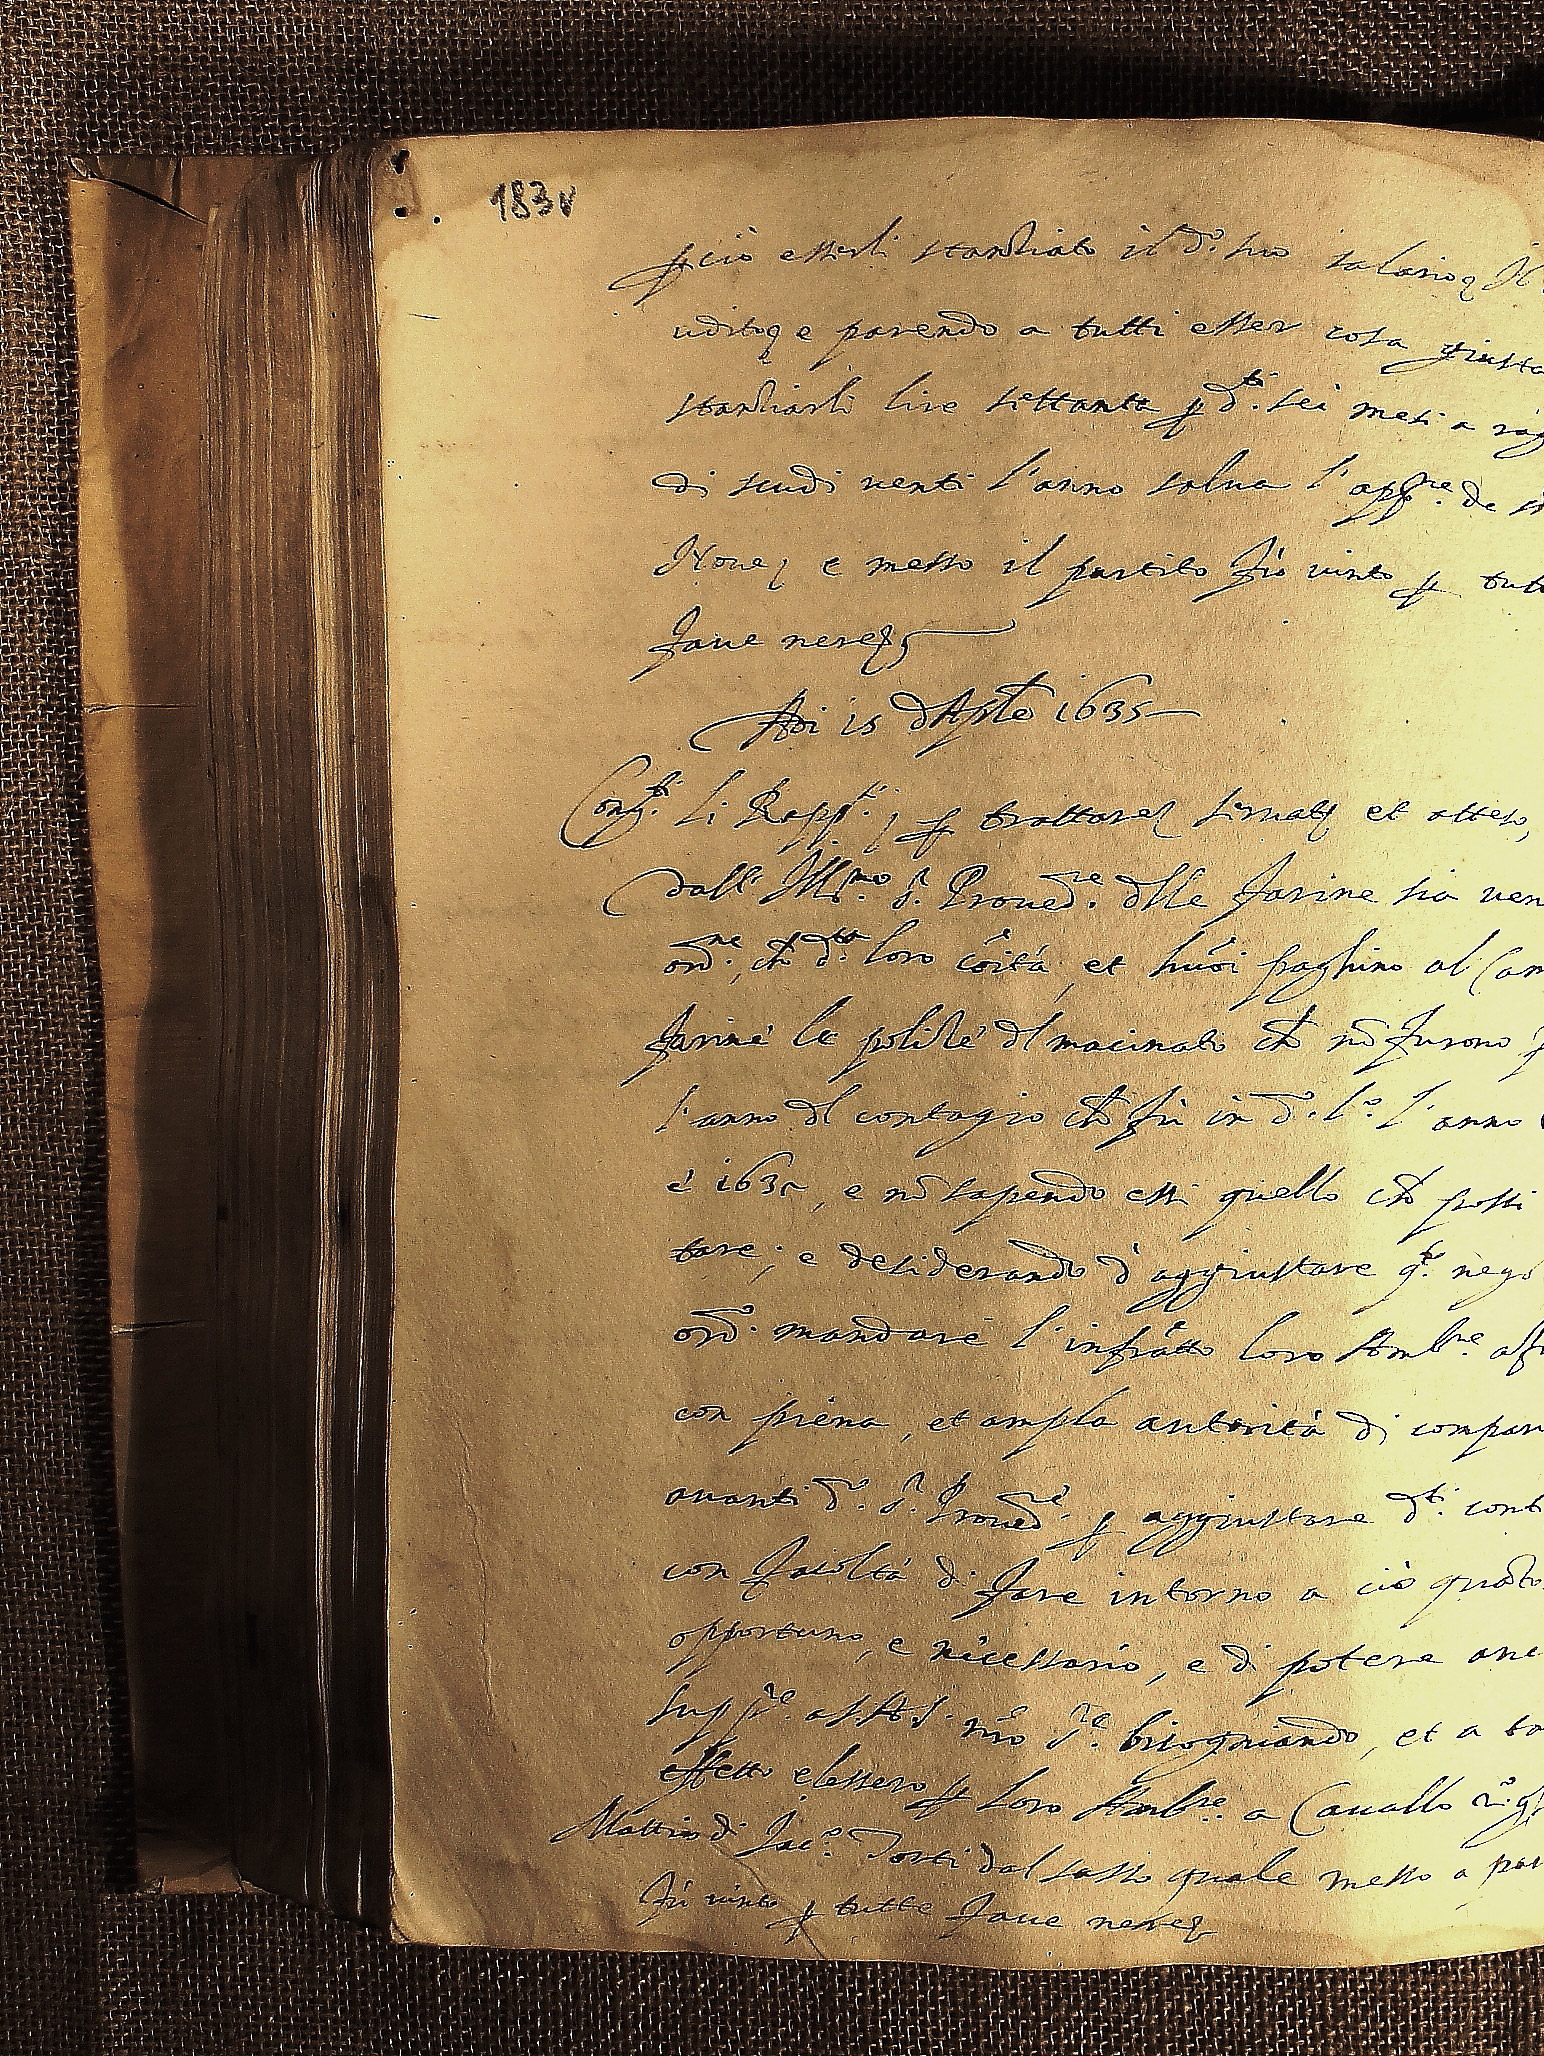 183v
p ciò esserli stantiato il d.º suo salario, Il
udito, e parendo a tutti esser cosa giusta
stantiarli lire settanta p d.ti sei mesi a rag
di scudi venti l'anno salua l'app.ne de
Noue, e messo il partito fù vinto p tutte
faue nere,
Adi 15 d'Agto 1635
Cong.ti li Rapp.ti p trattare, seruatis et atteso,
dall' Ill.mo s.r Proued.re dlle farine sia ven
ord.ne, ch d.ta loro cōità, et huōi paghino al Cam
farine le polize dl macinato ch nō furono p
l'anno dl contagio ch fù in d.º l.º l'anno
è 1635, e nō sapendo essi quello ch possi
tare, e desiderando d'aggiustare q.to nego
ord.º mandare l'infrātto loro Amb.re
con piena, et ampla autorità di compar
auanti d.º s.r Proued.re p aggiustare d.ti cont
con facoltà di fare intorno a ciò quāto
opportuno, e necessario, e di potere anc
supp.re al A.S. nr̄o s.re bisogniando, et a ta
effetto elessero p loro Amb.re a Cauallo
Matteo di Jac.º Torti dal sasso quale messo a par
fù vinto p tutte faue nere,